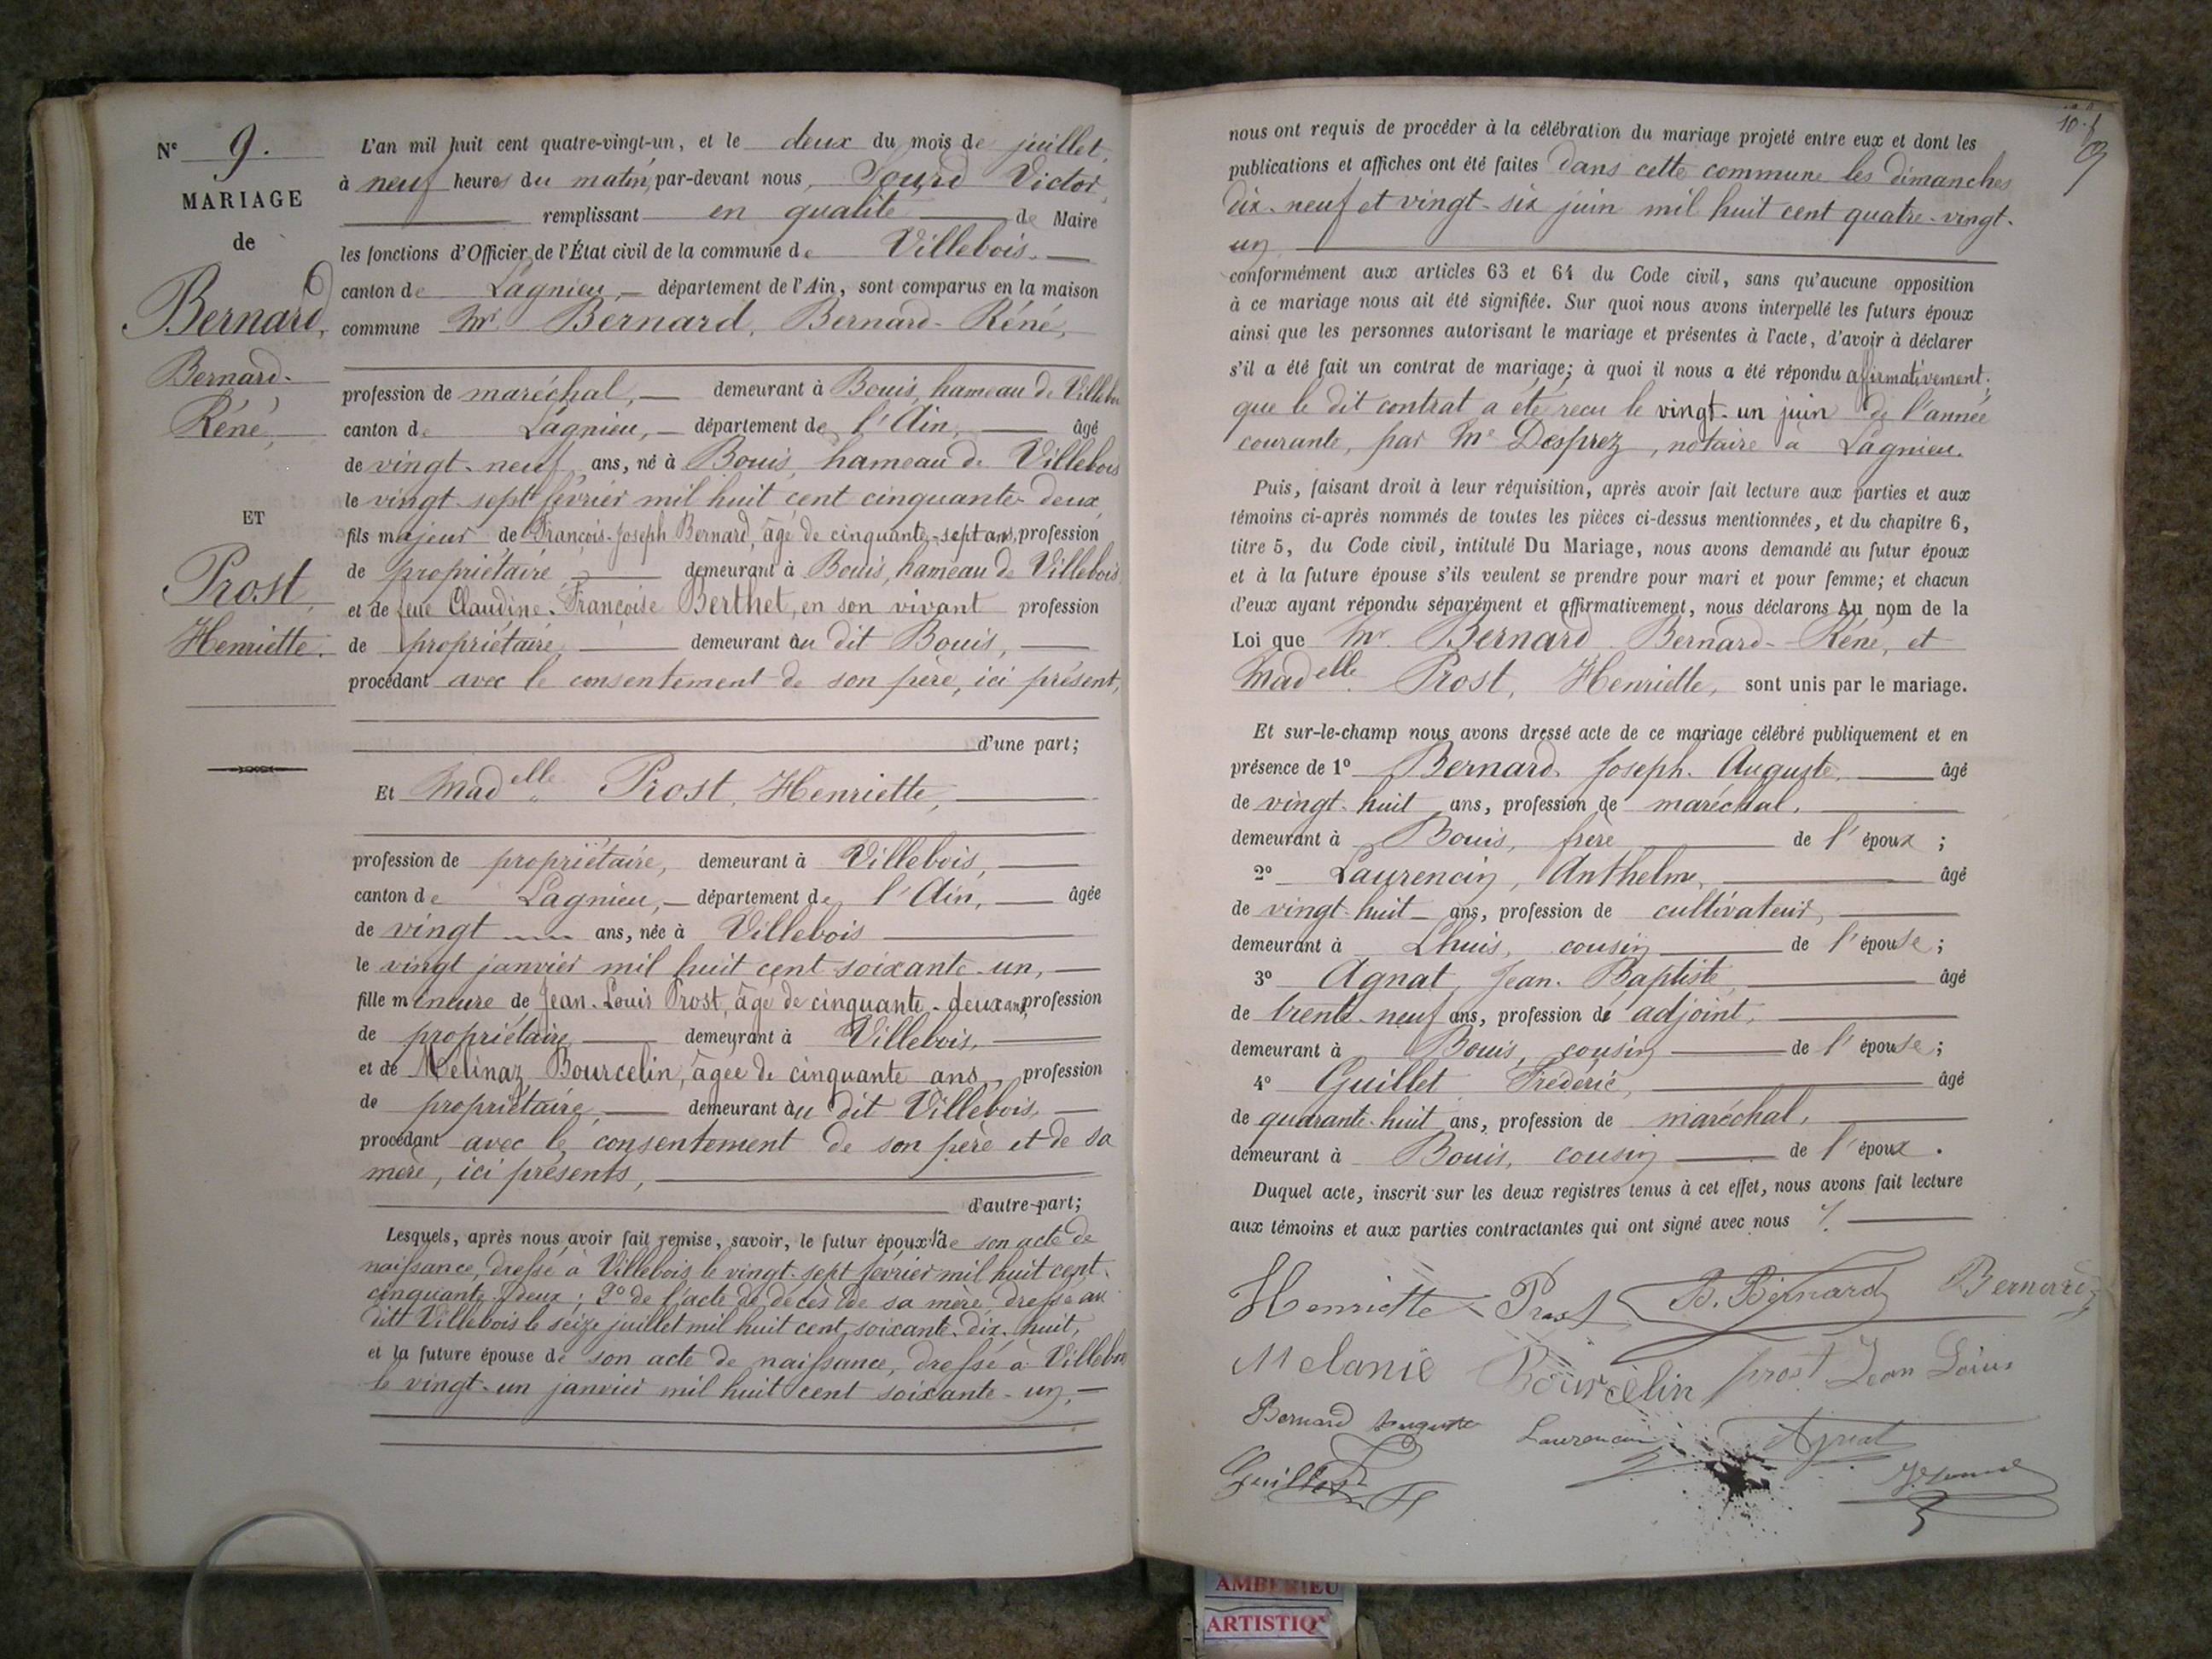 N° 9.
MARIAGE
de
Bernard,
Bernard-
Réné,
ET
Prost,
Henriette.
L'an mil huit cent quatre-vingt-un, et le deux du mois de juillet,
à neuf heures du matin, par-devant nous, Sourd Victor,
remplissant en qualité de Maire
les fonctions d'Officier de l'État civil de la commune de Villebois.
canton de Lagnieu, département de l'Ain, sont comparus en la maison
commune Mr Bernard, Bernard-Réné,
profession de maréchal, demeurant à Bouis, hameau de Villebois
canton de Lagnieu, département de l'Ain, âgé
de vingt-neuf ans, né à Bouis, hameau de Villebois
le vingt-sept février mil huit cent cinquante-deux,
fils majeur de François-Joseph Bernard, âgé de cinquante-sept ans, profession
de propriétaire, demeurant à Bouis, hameau de Villebois
et de feue Claudine-Françoise Berthet, en son vivant profession
de propriétaire demeurant au dit Bouis,
procédant avec le consentement de son père, ici présent,
d'une part;
Et Madelle Prost, Henriette,
profession de propriétaire, demeurant à Villebois,
canton de Lagnieu, département de l'Ain, âgée
de vingt ans, née à Villebois
le vingt janvier mil huit cent soixante-un,
fille mineure de Jean-Louis Prost, âgé de cinquante-deux ans, profession
de propriétaire demeurant à Villebois,
et de Mélinaz Bourcelin, âgée de cinquante ans, profession
de propriétaire, demeurant au dit Villebois,
procédant avec le consentement de son père et de sa
mère, ici présents,
d'autre-part;
Lesquels, après nous avoir fait remise, savoir, le futur époux 1° de son acte de
naissance, dressé à Villebois le vingt-sept février mil huit cent
cinquante-deux; 2° de l'acte de décès de sa mère, dressé au
dit Villebois le seize juillet mil huit cent soixante-dix-huit,
et la future épouse de son acte de naissance, dressé à Villebois
le vingt-un janvier mil huit cent soixante-un,
nous ont requis de procéder à la célébration du mariage projeté entre eux et dont les
publications et affiches ont été faites dans cette commune les dimanches
dix-neuf et vingt-six juin mil huit cent quatre-vingt-
un
conformément aux articles 63 et 64 du Code civil, sans qu'aucune opposition
à ce mariage nous ait été signifiée. Sur quoi nous avons interpellé les futurs époux
ainsi que les personnes autorisant le mariage et présentes à l'acte, d'avoir à déclarer
s'il a été fait un contrat de mariage; à quoi il nous a été répondu affirmativement;
que le dit contrat a été reçu le vingt-un juin de l'année
courante, par Me Desprez, notaire à Lagnieu.
Puis, faisant droit à leur réquisition, après avoir fait lecture aux parties et aux
témoins ci-après nommés de toutes les pièces ci-dessus mentionnées, et du chapitre 6,
titre 5, du Code civil, intitulé Du Mariage, nous avons demandé au futur époux
et à la future épouse s'ils veulent se prendre pour mari et pour femme; et chacun
d'eux ayant répondu séparément et affirmativement, nous déclarons Au nom de la
Loi que Mr Bernard Bernard-Réné, et
Madelle Prost, Henriette, sont unis par le mariage.
Et sur-le-champ nous avons dressé acte de ce mariage célébré publiquement et en
présence de 1° Bernard Joseph-Auguste, âgé
de vingt-huit ans, profession de maréchal,
demeurant à Bouis, frère de l'époux;
2° Laurencin, Anthelme, âgé
de vingt-huit ans, profession de cultivateur,
demeurant à Lhuis, cousin de l'épouse;
3° Agnat, Jean-Baptiste, âgé
de trente-neuf ans, profession de adjoint,
demeurant à Bouis, cousin de l'épouse;
4° Guillet Frédéric, âgé
de quarante-huit ans, profession de maréchal,
demeurant à Bouis, cousin de l'époux.
Duquel acte, inscrit sur les deux registres tenus à cet effet, nous avons fait lecture
aux témoins et aux parties contractantes qui ont signé avec nous
Henriette Prost B. Bernard Bernard
Melanie Bourcelin prost Jean Loius
Bernard Auguste Laurencin Agnat
Guillet
AMBERIEU
ARTISTIQ